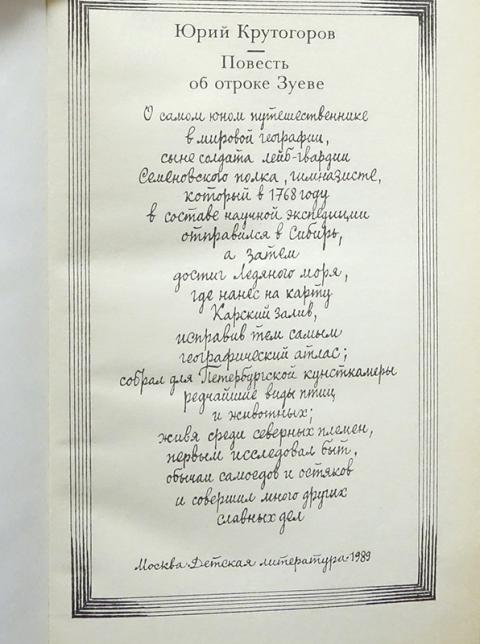 Юрий Крутогоров
Повесть
об отроке Зуеве
О самом юном путешественнике
в мировой географии,
сыне солдата лейб-гвардии
Семеновского полка, гимназисте,
который в 1768 году
в составе научной экспедиции
отправился в Сибирь,
а затем
достиг Ледяного моря,
где нанес на карту
Карский залив,
исправив тем самым
географический атлас;
собрал для Петербургской кунсткамеры
редчайшие виды птиц
и животных;
живя среди северных племен,
первым исследовал быт,
обычаи самоедов и остяков
и совершил много других
славных дел
Москва·Детская литература·1989